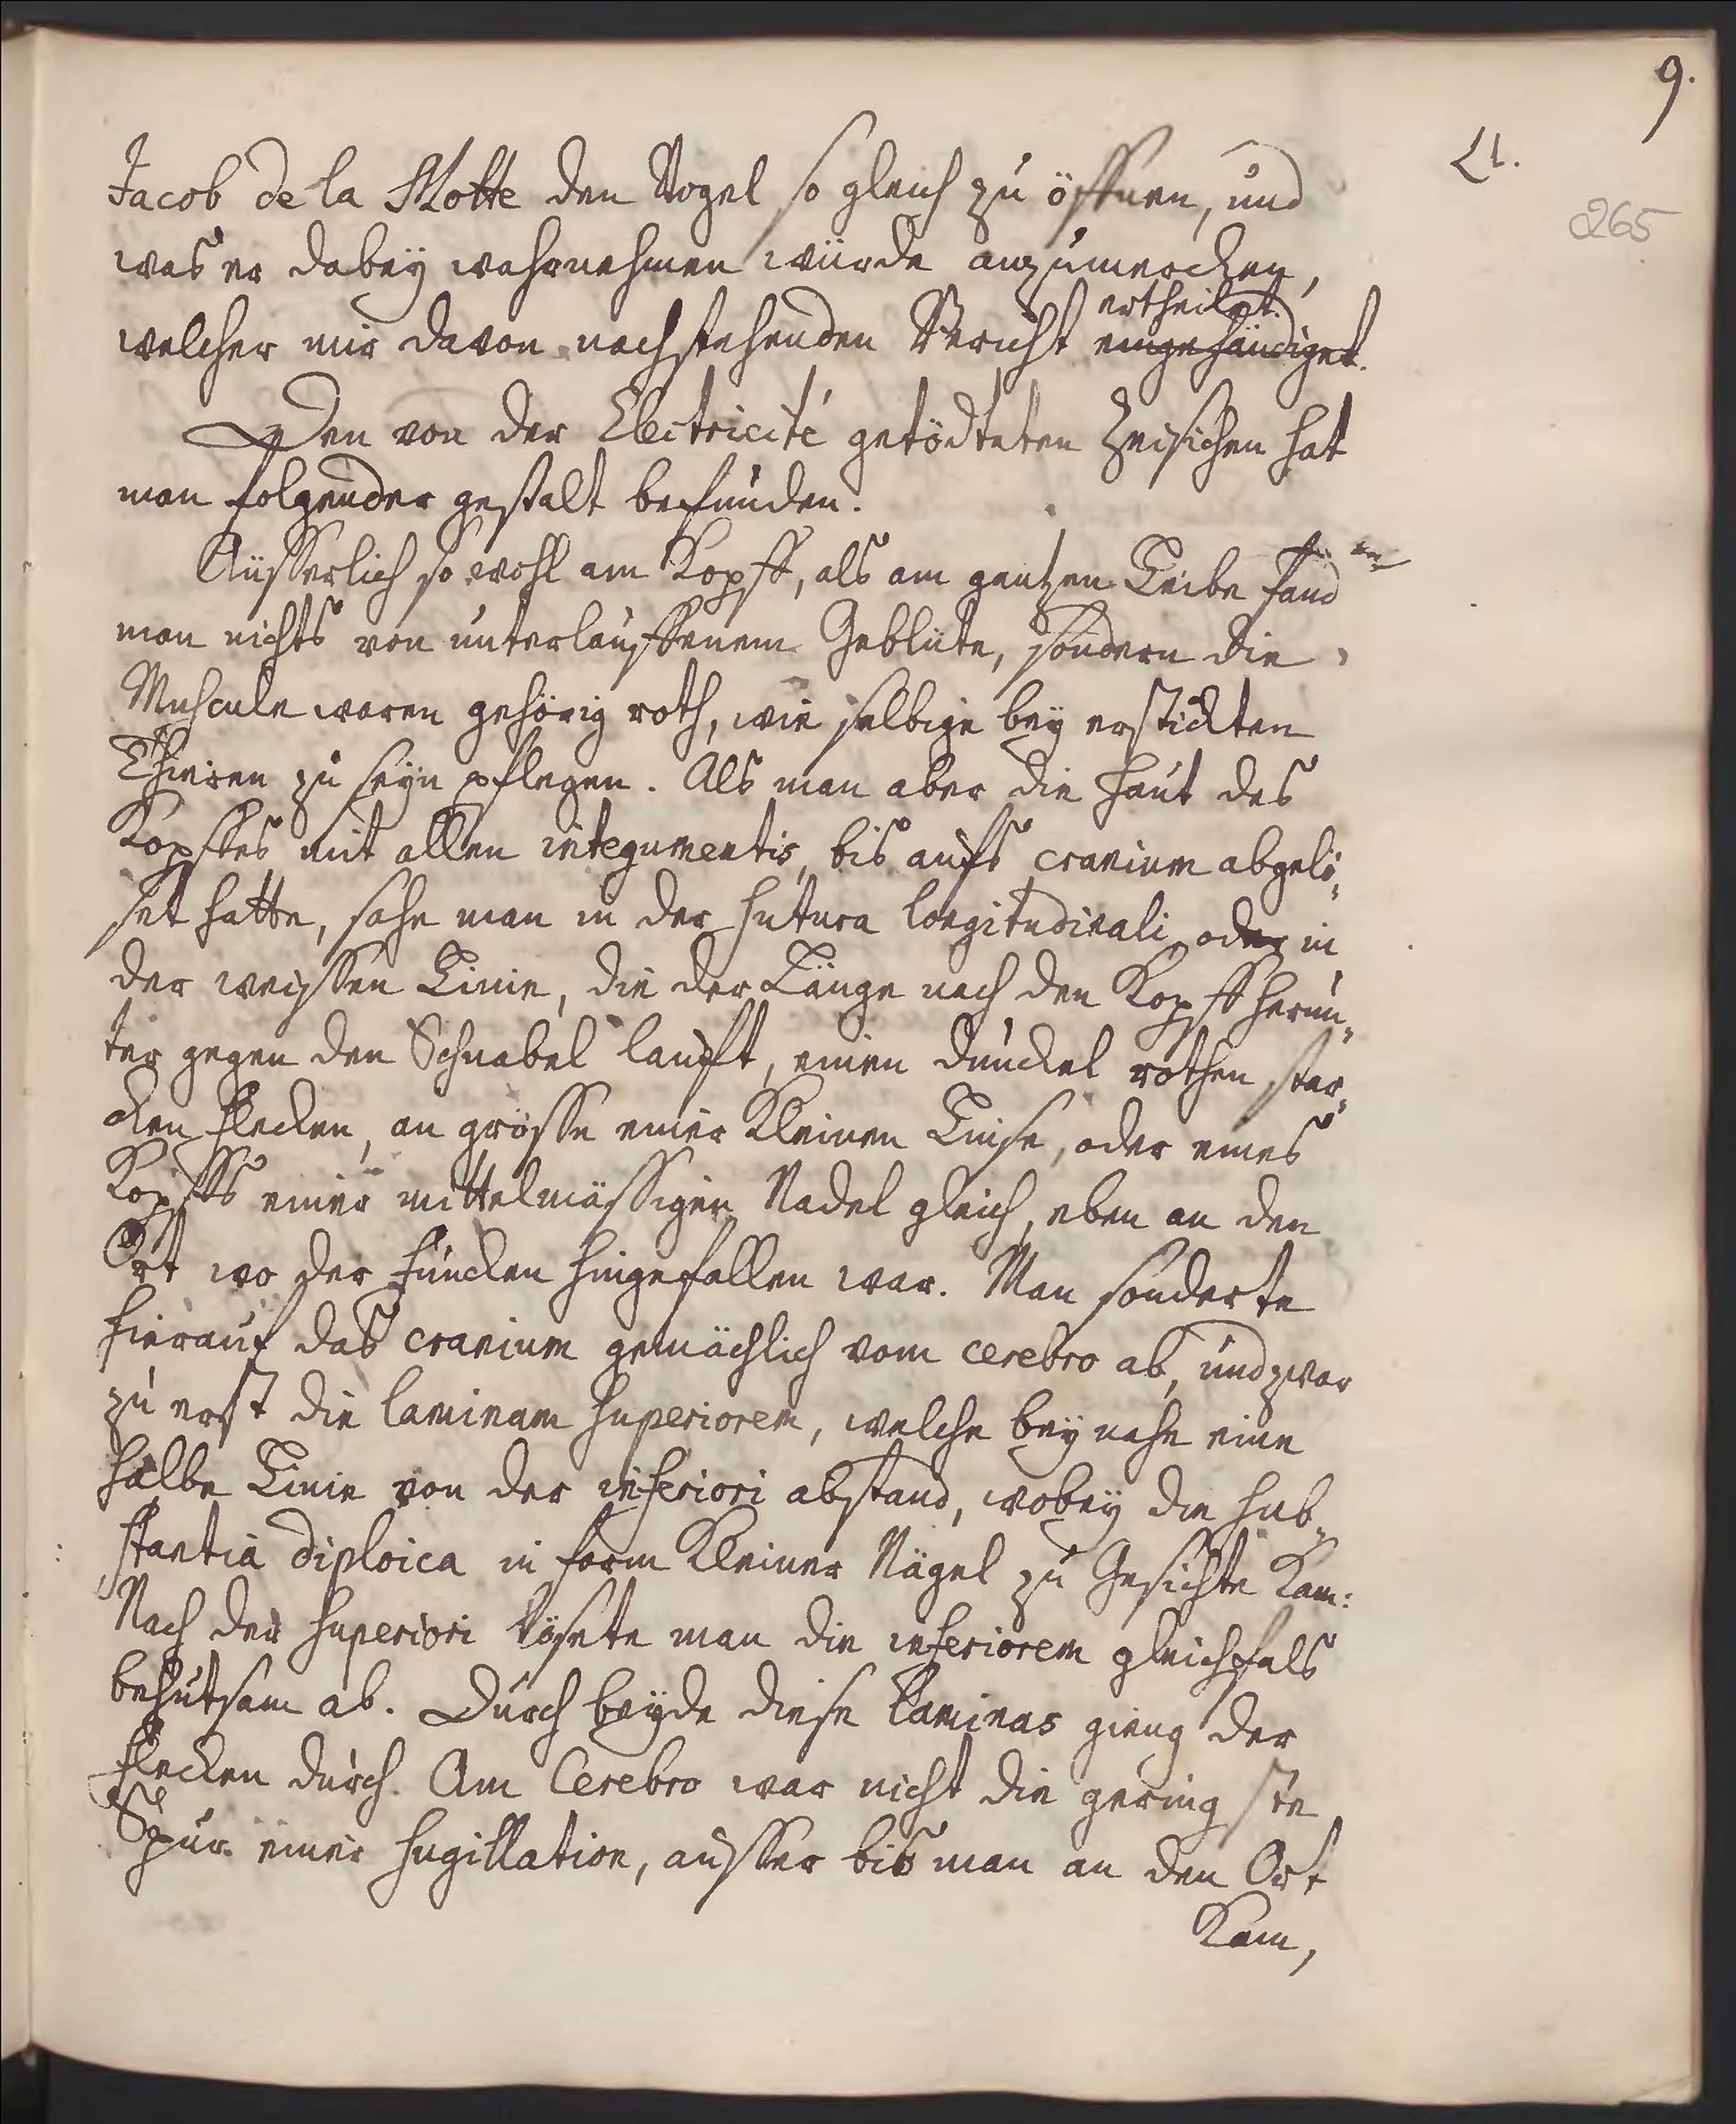 9.
265
Jacob de la Motte den Vogel so gleich zu öffnen, und
was er dabeÿ wahrnehmen würde anzumercken,
ertheilet.
welcher mir davon nachstehenden Bericht eingehändiget.
Den von der Electricité getödteten Zeisichen hat
man folgender gestalt befunden.
Äusserlich so wohl am Kopff, als am gantzen Leibe fand
man nichts von unterlauffenem Geblüte, sondern die
Musculn waren gehörig roth, wie selbige beÿ erstickten
Thieren zu seÿn pflegen. Als man aber die Haut des
Kopffes mit allen integumentis, bis aufs cranium abgelö-
set hatte, sahe man in der sutura longitudinali oder in
der weissen Linie, die der Länge nach den Kopff herun-
ter gegen den Schnabel laufft, einen dunckel rothen star-
cken Flecken, an grösse einer Kleinen Linse, oder eines
Kopffs einer mittelmässigen Nadel gleich, eben an den
Ort wo der Funcken hingefallen war. Man sonderte
hierauf das cranium gemächlich vom cerebro ab, und zwar
zu erst die laminam superiorem, welche beÿ nahe eine
halbe Linie von der inferiori abstand, wobeÿ die sub-
stantia diploica in form Kleiner Nägel zu Gesichte Kam:
Nach der superiori lösete man die inferiorem gleichfals
behutsam ab. Durch beÿde diese Laminas gieng der
Flecken durch. Am Cerebro war nicht die geringste
Spur einer sugillation, ausser bis man an den Ort
Kam,